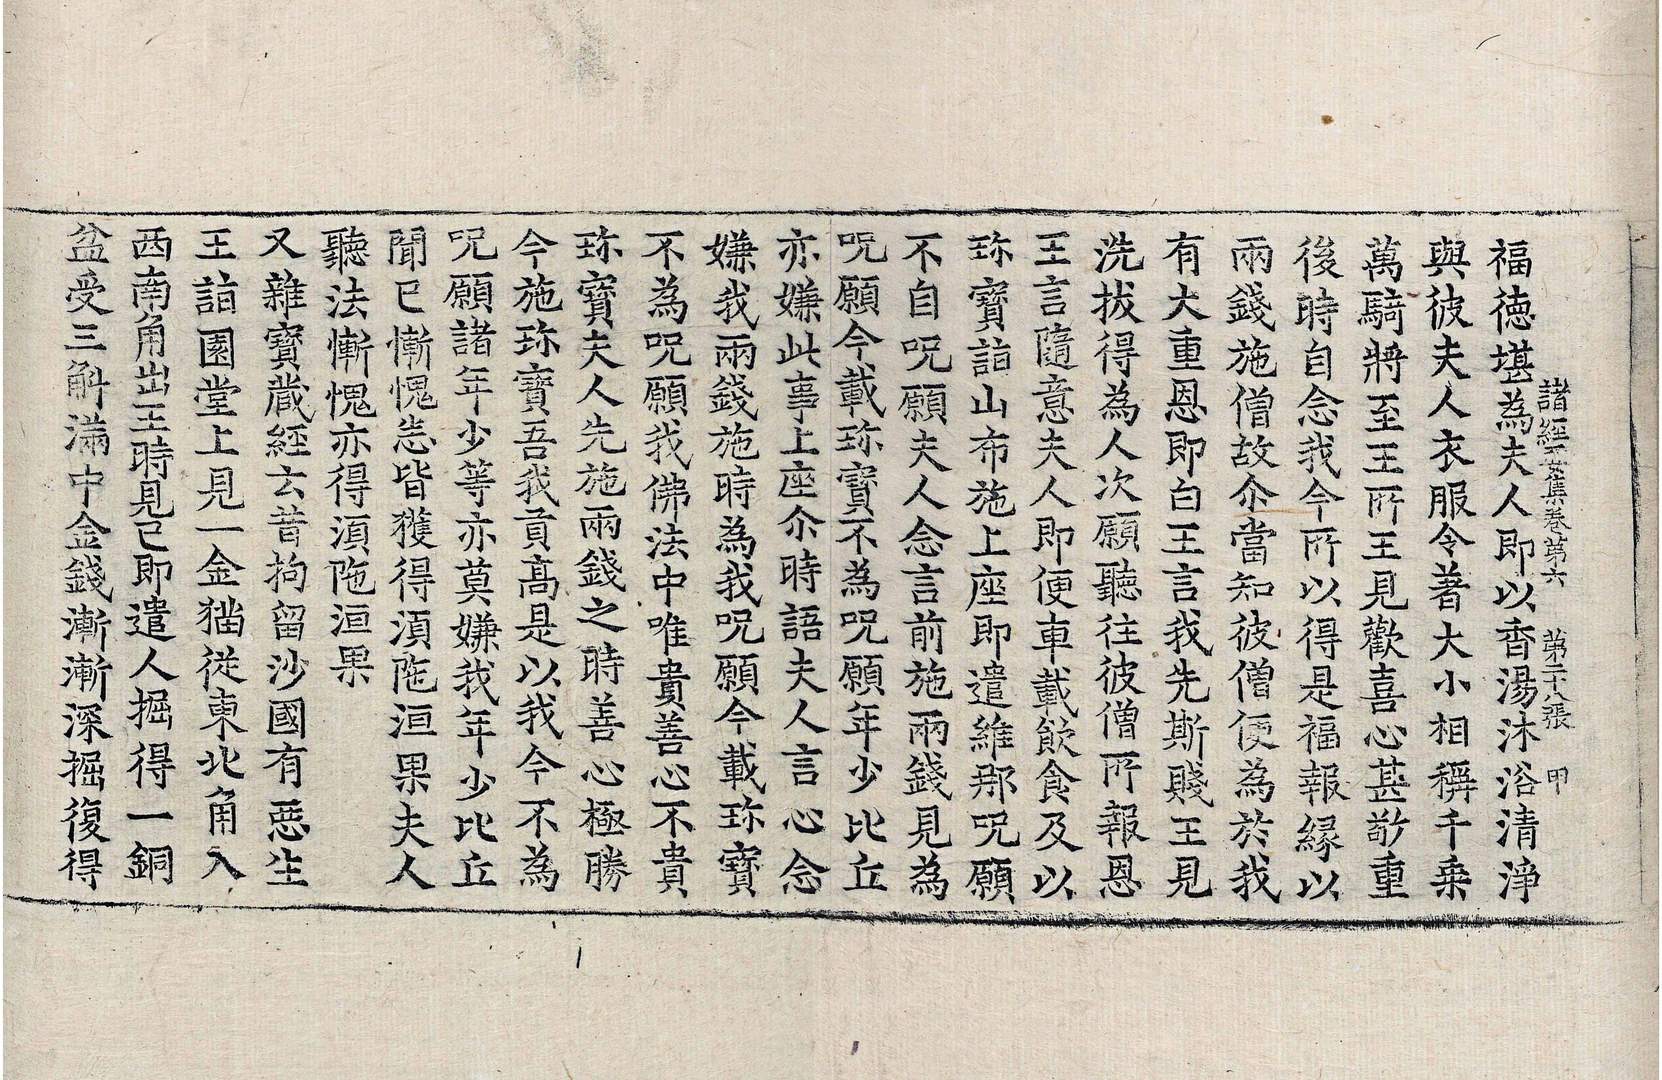 諸經要集卷第六 第二十八張 甲
福德堪為夫人即以香湯沐浴清淨
與彼夫人衣服令著大小相稱千乘
萬騎將至王所王見歡喜心甚敬重
後時自念我今所以得是福報緣以
兩錢施僧故尒當知彼僧便為於我
有大重恩即白王言我先斯賤王見
洗拔得為人次願聽往彼僧所報恩
王言隨意夫人即便車載飲食及以
珎寶詣山布施上座即遣維那呪願
不自呪願夫人念言前施兩錢見為
呪願今載珎寶不為呪願年少比丘
亦嫌此事上座尒時語夫人言心念
嫌我兩錢施時為我呪願今載珎寶
不為呪願我佛法中唯貴善心不貴
珎寶夫人先施兩錢之時善心極勝
今施珎寶吾我貢高是以我今不為
呪願諸年少等亦莫嫌我年少比丘
聞已慚愧悉皆獲得湏陁洹果夫人
聽法慚愧亦得湏陁洹果
又雜寶藏經云昔拘留沙國有惡生
王詣園堂上見一金猫從東北角入
西南角出王時見已即遣人掘得一銅
盆受三斛滿中金錢漸漸深掘復得